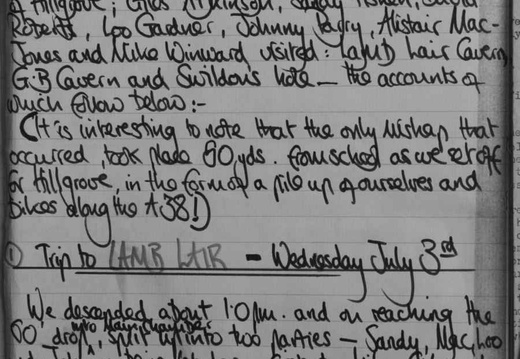 of Hillgrove; Giles Atkinson, Sandy
Roberts, Loo Gardner, Johnny Parry, Alistair Mac-
Jones and Mike Winward visited: Lamb Lair Cavern,
G.B Cavern and Swildons hole — the accounts of
which follow below:-
(It is interesting to note that the only mishap that
occurred, took place 60 yds. from school as we set off
for Hillgrove, in the form of a pile up of ourselves and
bikes along the A38!)
① Trip to LAMB LAIR - Wednesday July 3rd
We descended about 1.0 p.m. and on reaching the
60' drop, into Main Chamber, split up into two parties — Sandy, Mac, Loo